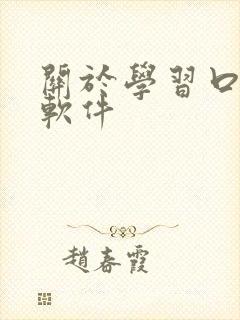 關於學習口
軟件
趙春霞